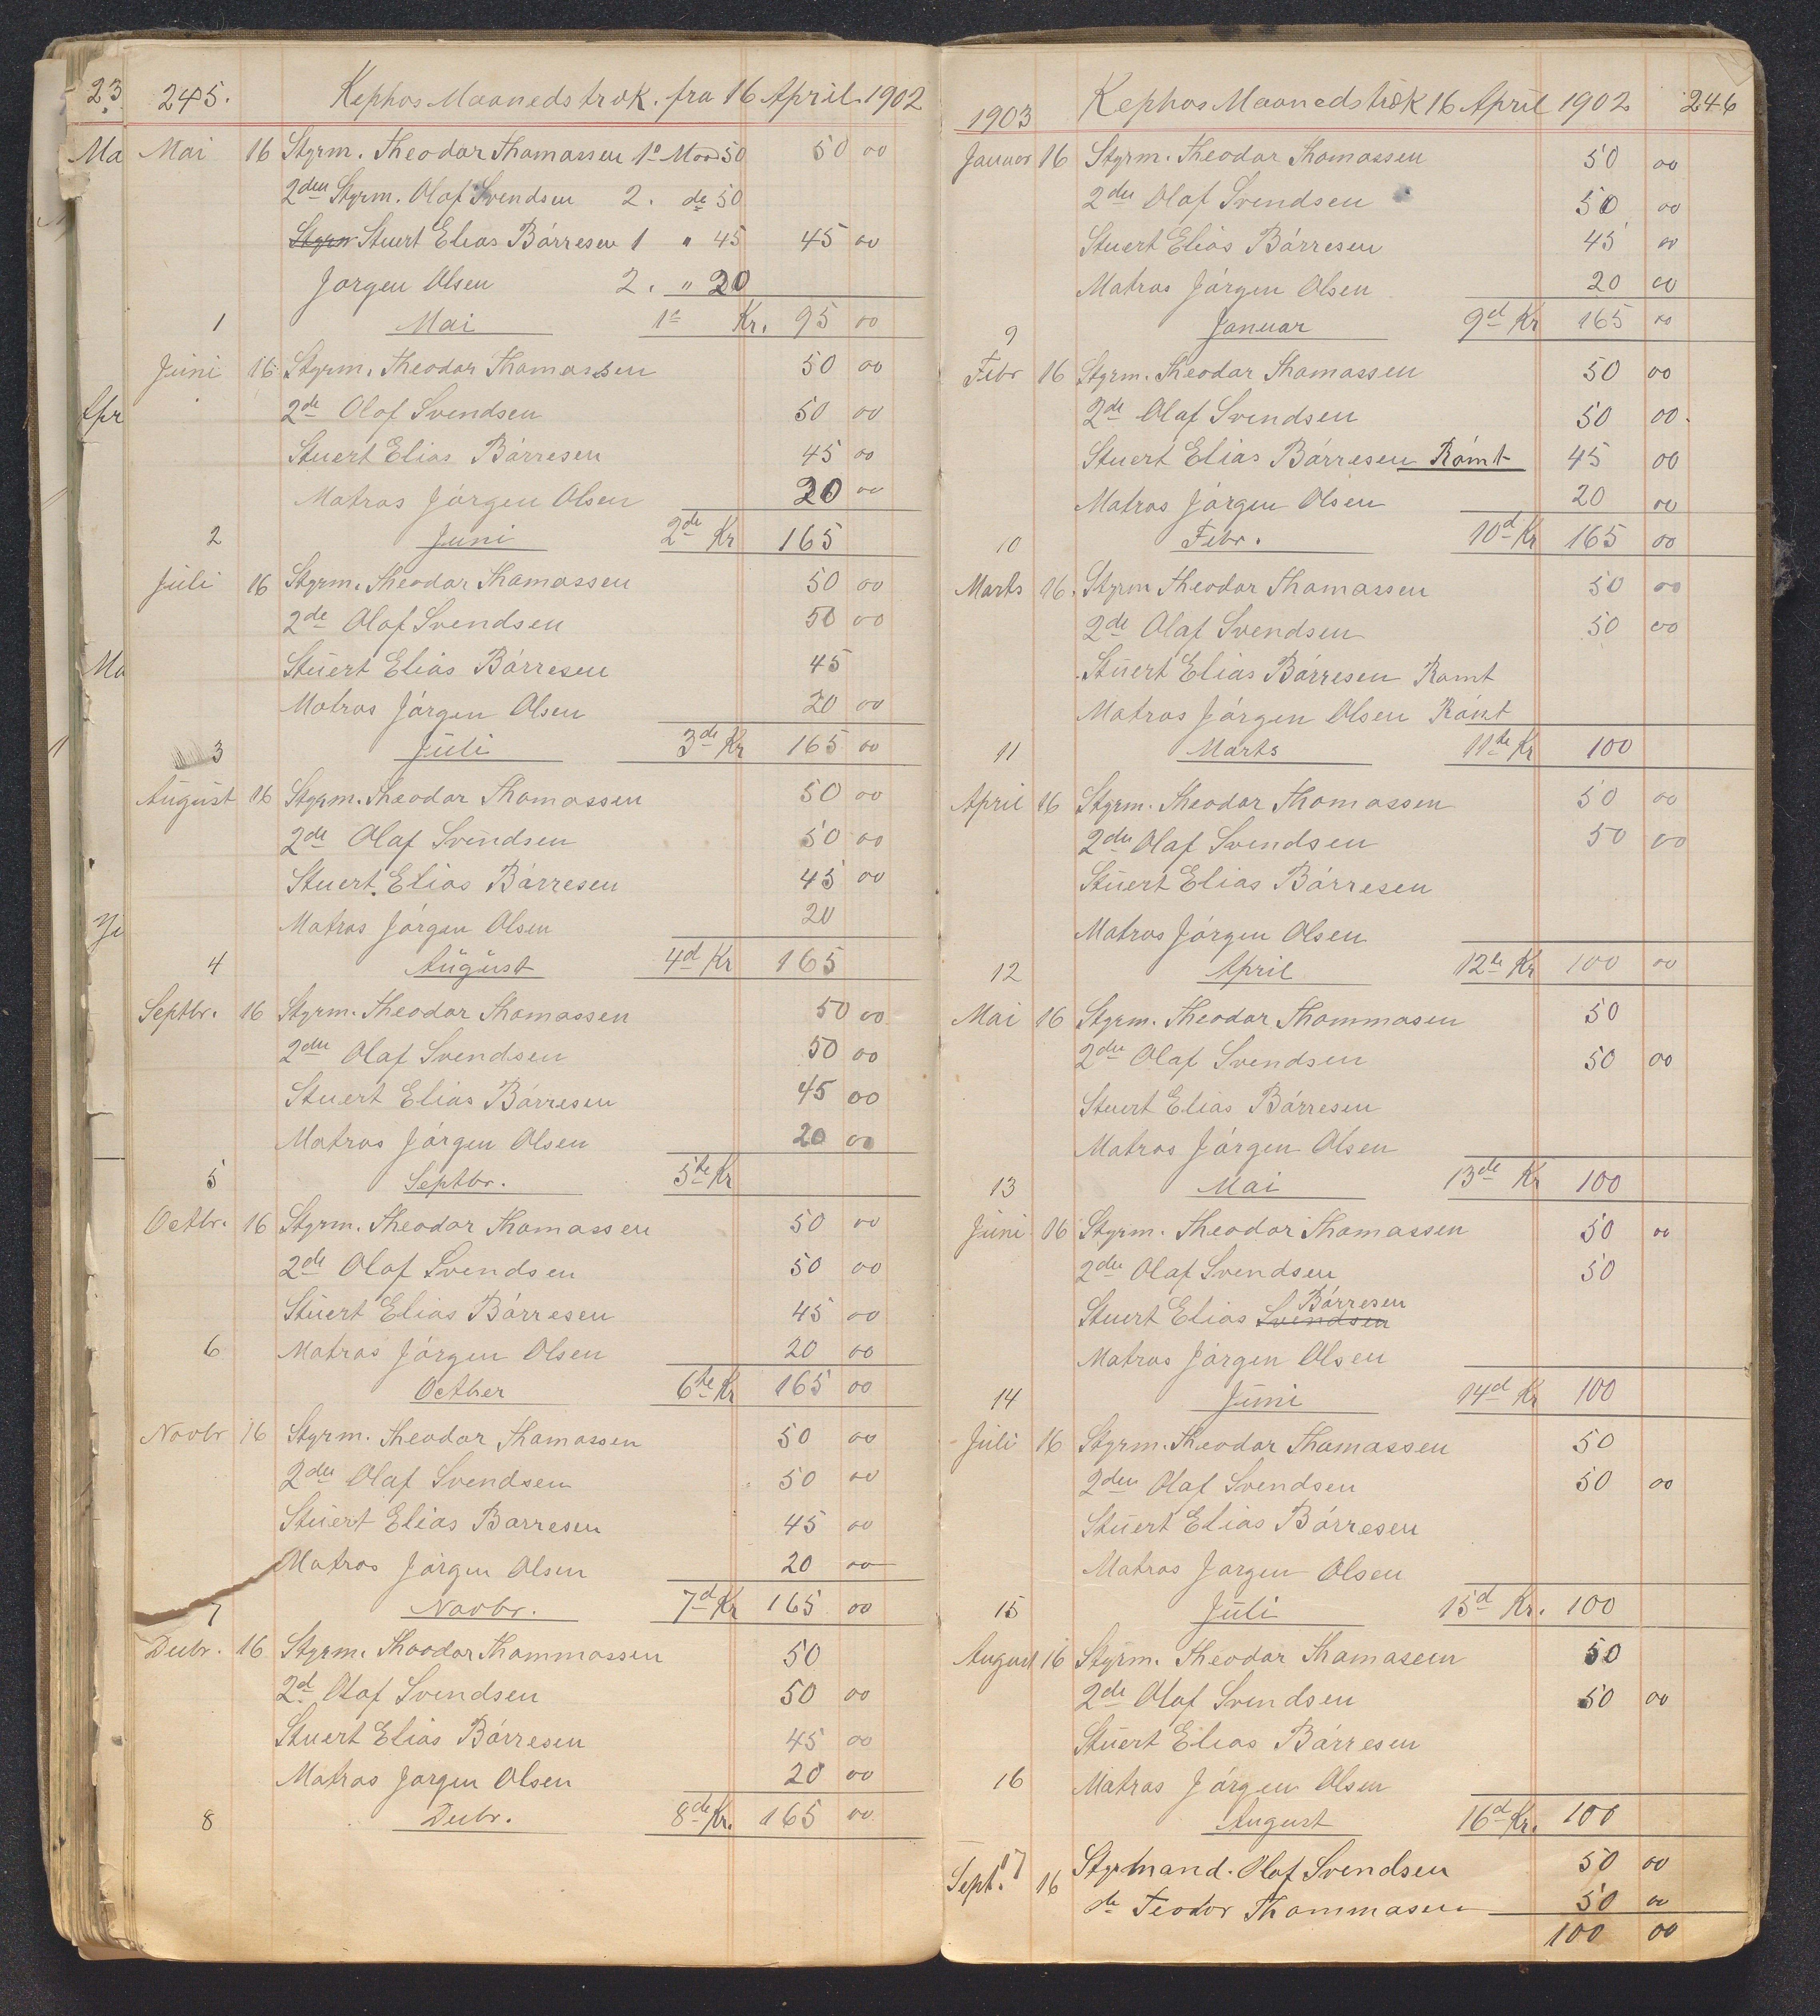 23 245. Kephos Maanedstræk. fra 16 April. 1902
Ma Mai 16 Styrm. Theodor Thomassen 1ª Mand 50 50 00
2den Styrm. Olaf Svendsen 2. do 50
Styrm Stuert Elias Bórresen 1 " 45 45 00
Jorgen Olsen 2. " 20
1 Mai 1ª Kr. 95 00
Juni 16 Styrm. Theodor Thomassen 50 00
Apr 2de Olaf Svendsen 50 00
Stuert Elias Bórresen 45 00
Matros Jórgen Olsen 20 00
2 Juni 2de Kr 165
Juli 16 Styrm. Theodor Thomassen 50 00
2de Olaf Svendsen 50 00
Ma Stuert Elias Bórresen 45
Matros Jórgen Olsen 20 00
3 Juli 3de Kr 165 00
August 16 Styrm. Theodor Thomassen 50 00
2de Olaf Svendsen 50 00
Stuert Elias Bórresen 45 00
Matros Jórgen Olsen 20
4 August 4d Kr 165
Septbr. 16 Styrm. Theodor Thomassen 50 00
2den Olaf Svendsen 50 00
Stuert Elias Bórresen 45 00
Matros Jórgen Olsen 20 00
5 Septbr. 5te Kr
Octbr. 16 Styrm. Theodor Thomassen 50 00
2de Olaf Svendsen 50 00
Stuert Elias Bórresen 45 00
6 Matros Jórgen Olsen 20 00
Octber 6te Kr 165 00
Novbr 16 Styrm. Theodor Thomassen 50 00
2den Olaf Svendsen 50 00
Stuert Elias Borresen 45 00
Matros Jórgen Olsen 20 00
7 Novbr. 7d Kr 165 00
Decbr. 16 Styrm. Thoodor Thommossen 50
2d Olaf Svendsen 50 00
Stuert Elias Bórresen 45 00
Matros Jorgen Olsen 20 00
8 Decbr. 8de Kr. 165 00
1903 Kephos Maanedstræk 16 April 1902 246
Januar 16 Styrm. Theodor Thomassen 50 00
2den Olaf Svendsen 50 00
Stuert Elias Bórresen 45 00
Matros Jórgen Olsen 20 00
9 Januar 9d Kr 165 00
Febr 16 Styrm. Theodor Thomassen 50 00
2de Olaf Svendsen 50 00.
Stuert Elias Bórresen Rómt 45 00
Matros Jórgen Olsen 20 00
10 Febr. 10d Kr 165 00
Marts 16. Styrm Theodor Thomassen 50 00
2de Olaf Svendsen 50 00
Stuert Elias Bórresen Romt
Matros Jórgen Olsen Rómt
11 Marts 11te Kr 100
April 16 Styrm. Theodor Thomassen 50 00
2den Olaf Svendsen 50 00
Stuert Elias Bórresen
Matros Jórgen Olsen
12 April 12te Kr 100 00
Mai 16 Styrm. Theodor Thommasen 50
2den Olaf Svendsen 50 00
Stuert Elias Bórresen
Matros Jórgen Olsen
13 Mai 13de Kr 100
Juni 16 Styrm. Theodor Thomassen 50 00
2den Olaf Svendsen 50
Bórresen
Stuert Elias Svendsen
Matros Jórgen Olsen
14 Juni 14d Kr 100
Juli 16 Styrm. Theodor Thomassen 50
2den Olaf Svendsen 50 00
Stuert Elias Bórresen
Matros Jorgen Olsen
15 Juli 15d Kr. 100
August 16 Styrm. Theodor Thomasen 50
2de Olaf Svendsen 50 00
Stuert Elias Bórresen
16 Matros Jórgen Olsen
August 16d Kr. 100
Sept. 17 16 Styrmand. Olaf Svendsen 50 00
do Teodor Thommasen 50 00
100 00